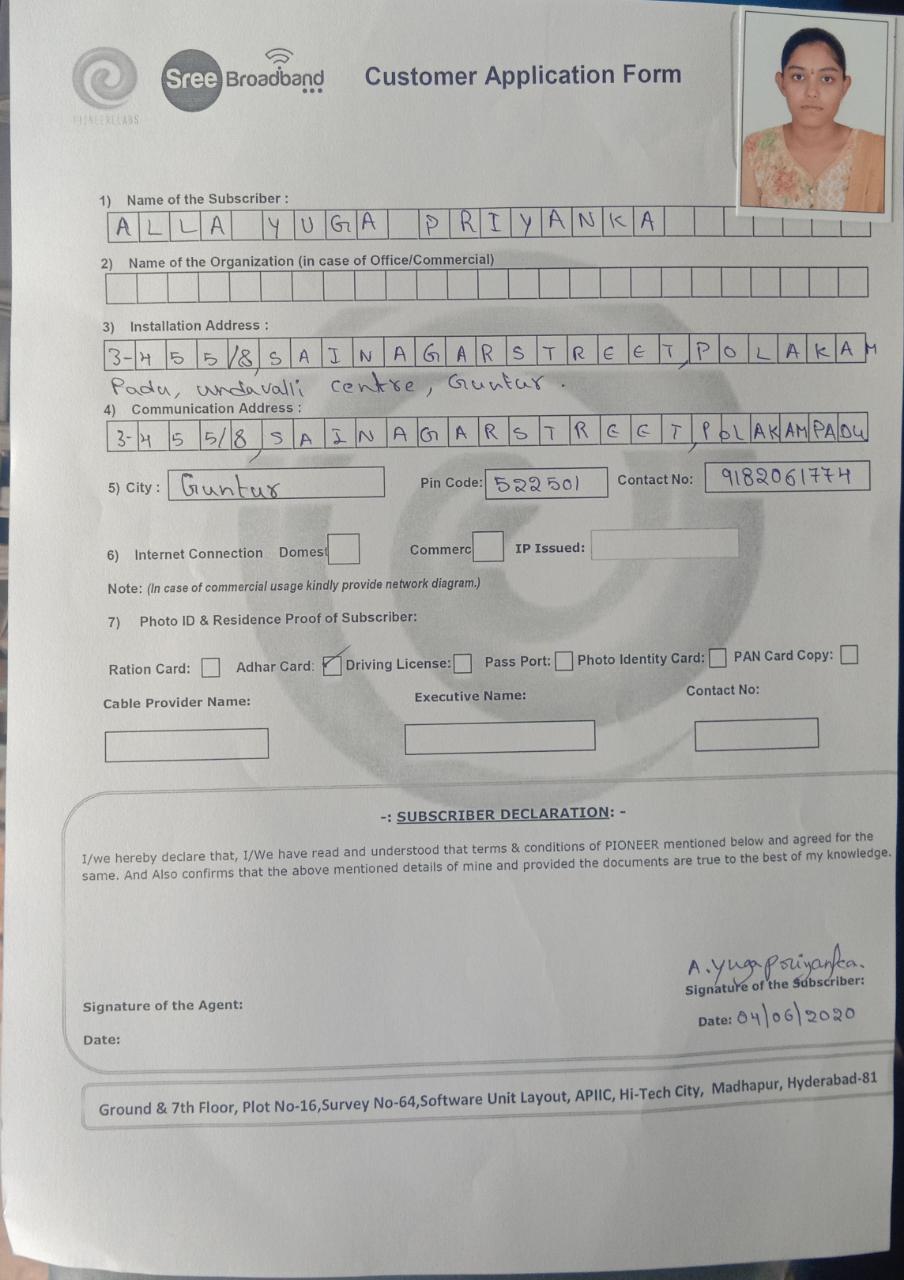 PIONEERLABS
Sree Broadband
Customer Application Form
1) Name of the Subscriber :
ALLA YUGA PRIYANKA
2) Name of the Organization (in case of Office/Commercial)
3) Installation Address :
3-455/8, SAINAGARSTREET, POLAKAM
Padu, undavalli centre, Guntur.
4) Communication Address :
3-455/8, SAINAGARSTREET, POLAKAMPADU
5) City : Guntur Pin Code: 522501 Contact No: 9182061774
6) Internet Connection Domest Commerc IP Issued:
Note: (In case of commercial usage kindly provide network diagram.)
7) Photo ID & Residence Proof of Subscriber:
Ration Card: Adhar Card: Driving License: Pass Port: Photo Identity Card: PAN Card Copy:
Cable Provider Name: Executive Name: Contact No:
-: SUBSCRIBER DECLARATION: -
I/we hereby declare that, I/We have read and understood that terms & conditions of PIONEER mentioned below and agreed for the
same. And Also confirms that the above mentioned details of mine and provided the documents are true to the best of my knowledge.
A. Yuga Priyanka.
Signature of the Agent: Signature of the Subscriber:
Date: Date: 04/06/2020
Ground & 7th Floor, Plot No-16,Survey No-64,Software Unit Layout, APIIC, Hi-Tech City, Madhapur, Hyderabad-81